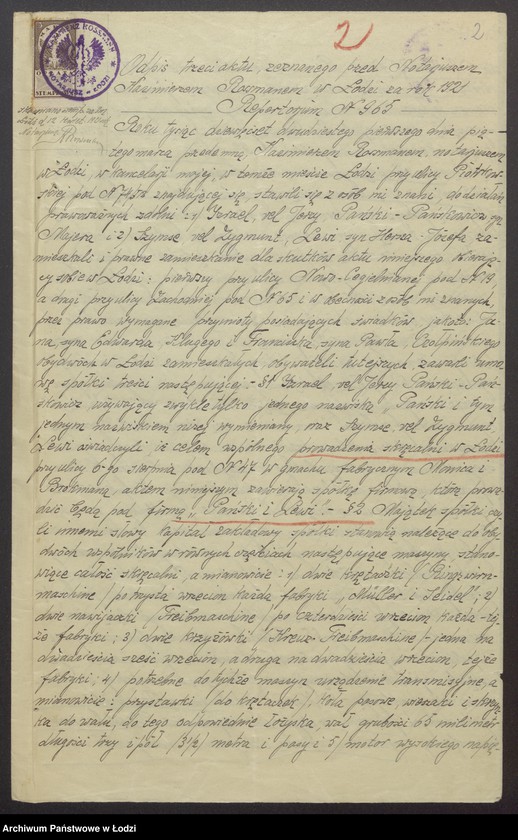 2
2
Odpis trzeci aktu, zeznanego przed Notarjuszem
Kazimierzem Rosmanem w Łodzi za rok 1921
Repertorjum № 965
Roku tysiąc dziewięćset dwudziestego pierwszego dnia pią-
tego marca przedemną, Kazimierzem Rosmanem, notarjuszem
w Łodzi, w kancelarji mojej, w temże mieście Łodzi przy ulicy Piotrkow-
skiej pod № znajdującej się, stawili się z osób mi znani, do działań
prawnych zdolni: 1/ Izrael, vel Jerzy Pański-Pańskowicz syn
Majera i 2/ Szymse vel Zygmunt, Lewi syn Hersza-Józefa za-
mieszkali i prawne zamieszkanie dla skutków aktu niniejszego obierają-
cy sobie w Łodzi: pierwszy przy ulicy Nowo-Cegielnianej pod № 19,
a drugi przy ulicy Zachodniej pod № 65 i w obecności z osób mi znanych,
przez prawo wymagane przymioty posiadających świadków, jakoto: Ja-
na, syna Edwarda, Długiego i Franciszka, syna Pawła,
obydwóch w Łodzi zamieszkałych, obywateli tutejszych, zawarli umo-
wę spółki treści następującej:- §1 Izrael, vel Jerzy Pański-Pań-
skowicz, używający zwykle tylko jednego nazwiska "Pański" i tym
jednym nazwiskiem niżej wymieniany, oraz Szymse, vel Zygmunt
Lewi oświadczyli, iż celem wspólnego prowadzenia skręcalni w Łodzi
przy ulicy 6-go sierpnia pod № 47 w gmachu fabrycznym i
Brokmana, aktem niniejszym zawierają spółkę firmową, którą prowa-
dzić będą pod firmą "Pański i Lewi".- §2 Majątek spółki czy-
li innemi słowy kapitał zakładowy spółki stanowią należące do oby-
dwóch wspólników w równych częściach następujące maszyny stano-
wiące całość skręcalni, a mianowicie: 1/ dwie krętarki /Ringzwirn-
maschine/ po trzysta wrzecion każda fabryki "Müller i Seidel"; 2/
dwie nawijaczki /Treibmaschine/ po czterdzieści wrzecion każda - tej-
że fabryki; 3) dwie krzyżówki /Kreuz-Treibmaschine/ - jedna na
dwadzieścia sześć wrzecion, a druga na dwadzieścia wrzecion, tejże
fabryki; 4) potrzebne do tychże maszyn urządzenie transmisyjne, a
mianowicie: przystawki /do krętarek/, koła pasowe, wieszaki i skrzyn-
ka do wału, do tego odpowiednie łożyska, wał grubości 65 milimetr.
długości trzy i pół /3½/ metra i pasy i 5/ motor wysokiego napię-
Archiwum Państwowe w Łodzi